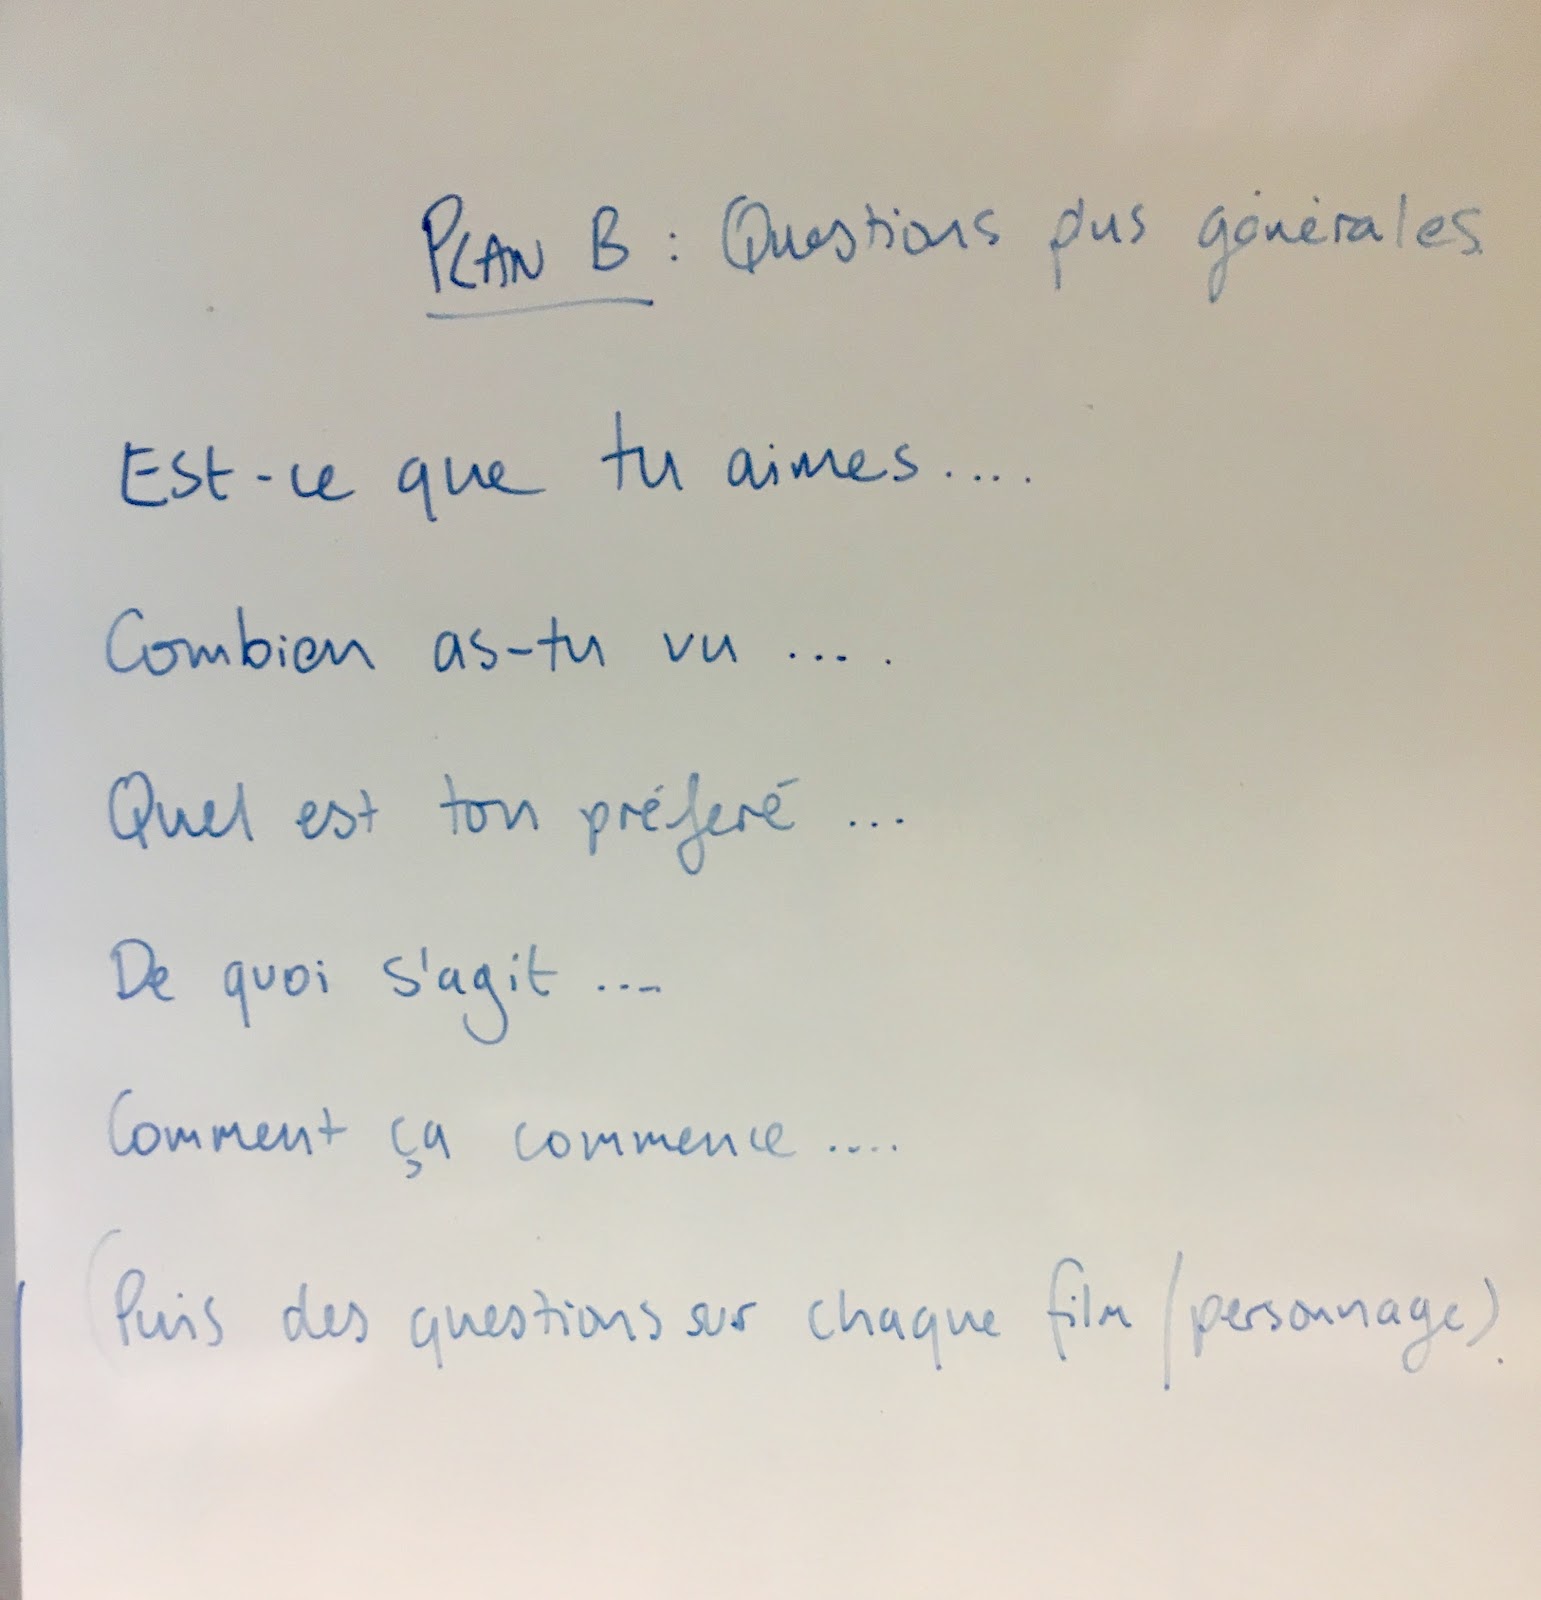 PLAN B : Questions plus générales
Est-ce que tu aimes....
Combien as-tu vu ....
Quel est ton préferé ...
De quoi s'agit ....
Comment ça commence ....
(Puis des questions sur chaque film / personnage).